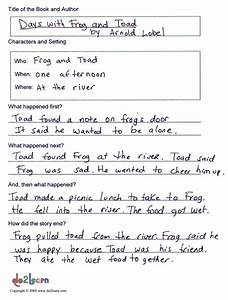 Title of the Book and Author
Days with Frog and Toad
by Arnold Lobel
Characters and Setting
Who: Frog and Toad
When: one afternoon
Where: At the river
What happened first?
Toad found a note on frog's door
It said he wanted to be alone.
What happened next?
Toad found Frog at the river. Toad said
Frog was sad. He wanted to cheer him up
And, then what happened?
Toad made a picnic lunch to take to Frog.
He fell into the river. The food got wet.
How did the story end?
Frog pulled toad from the river. Frog said he
was happy because Toad was his friend.
They ate the wet food together
do2learn